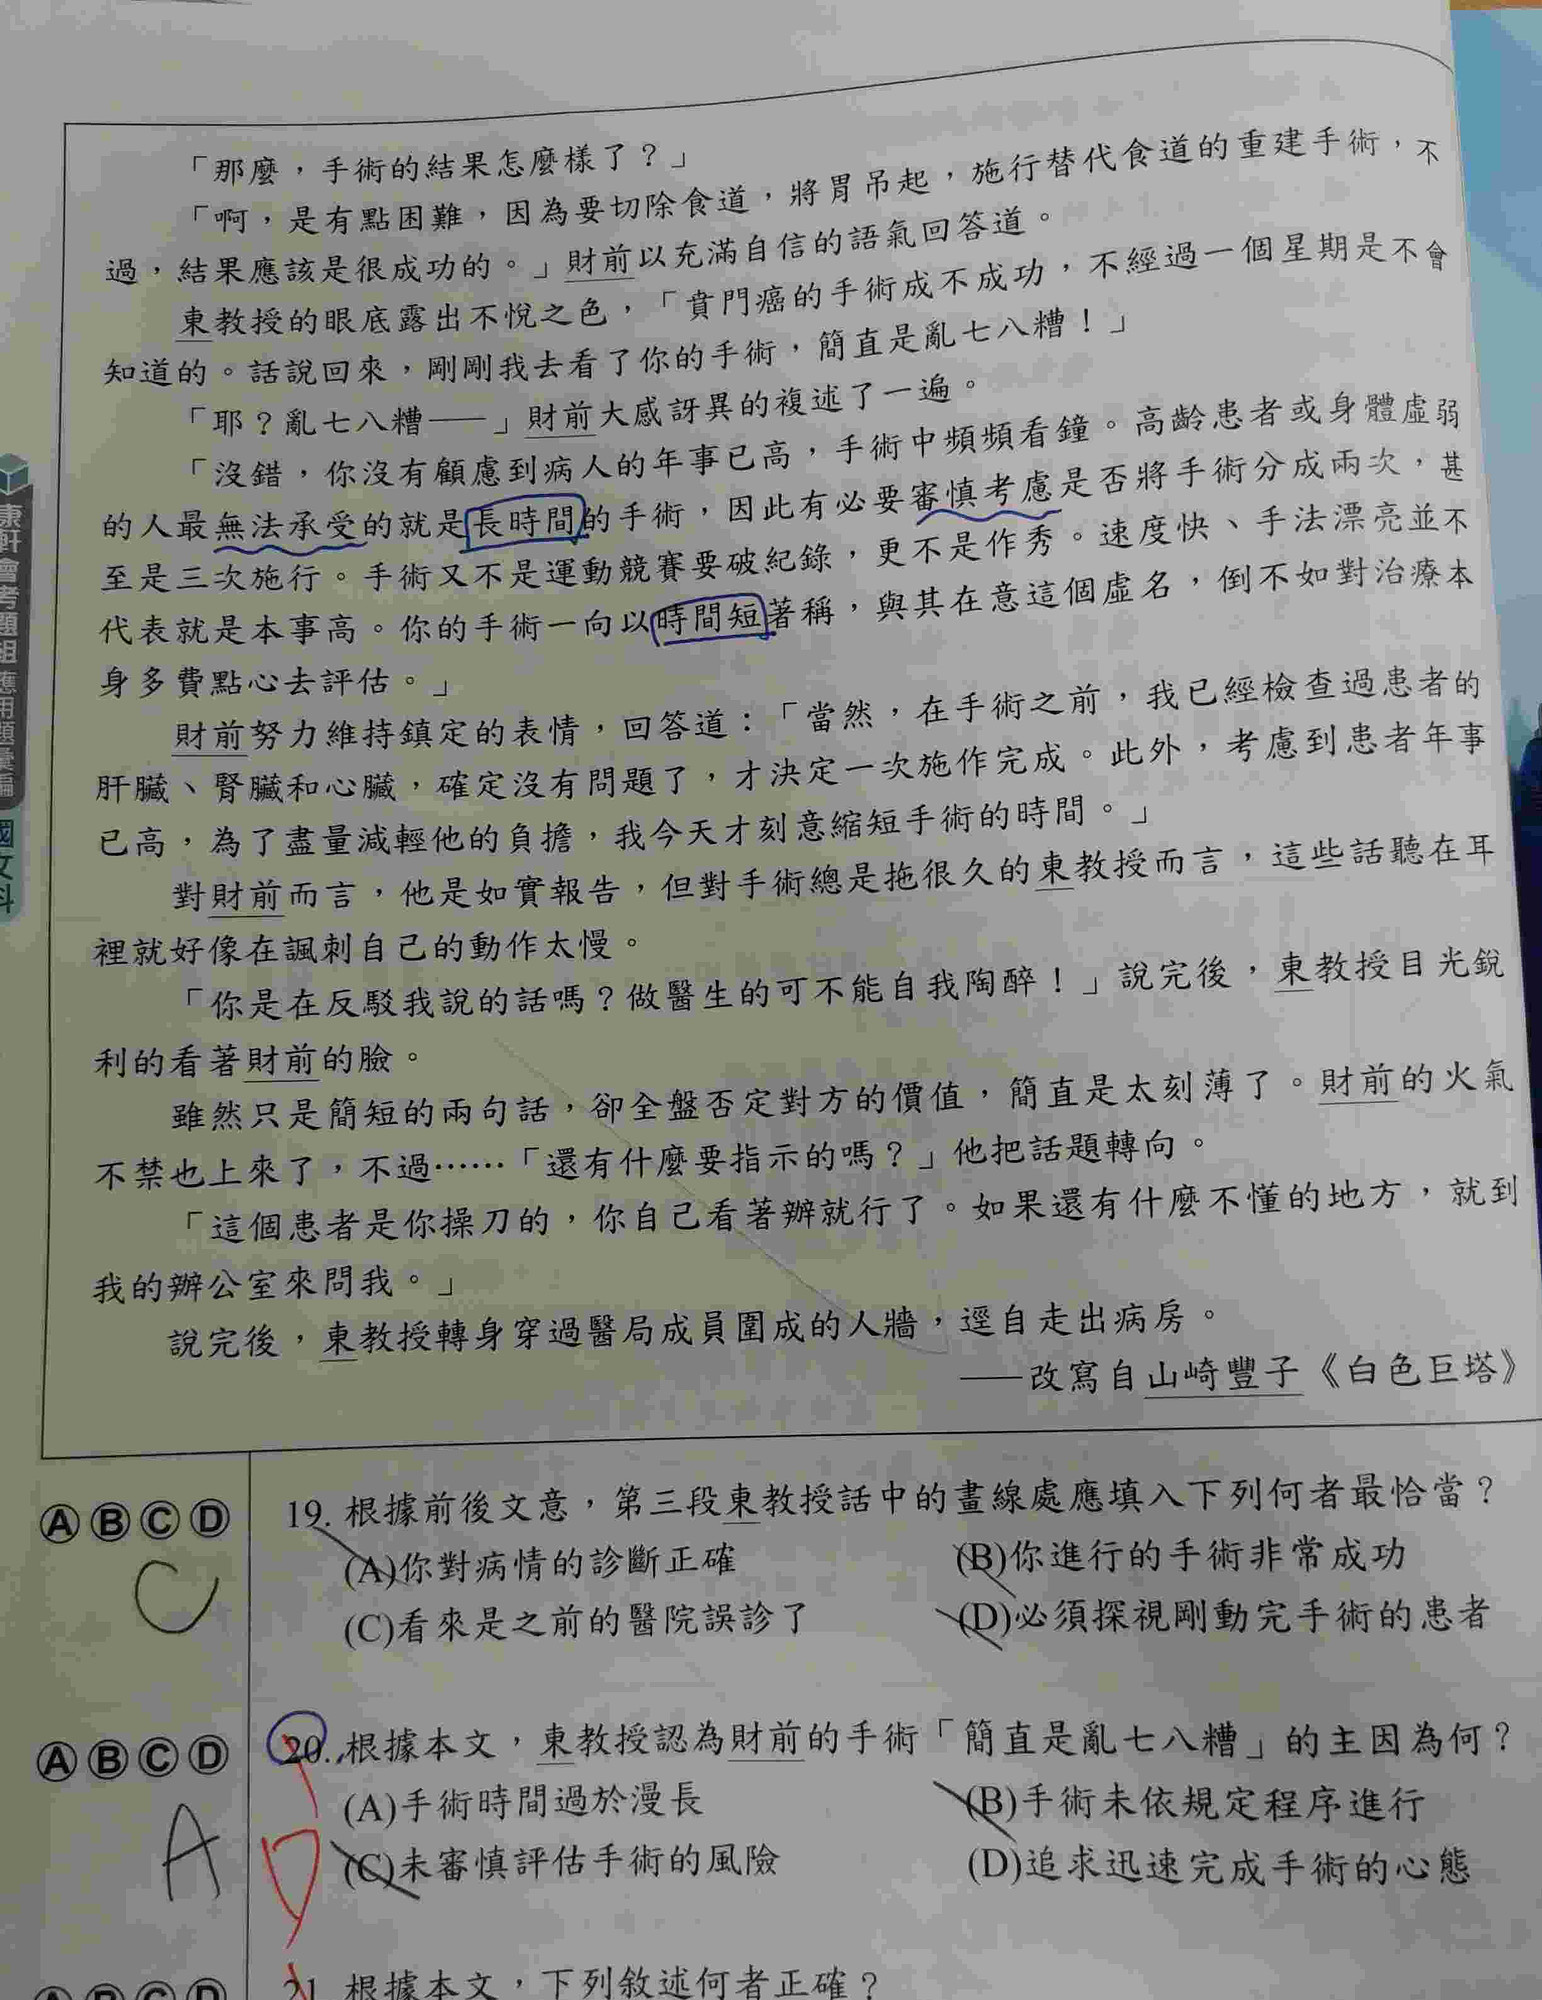 「那麼，手術的結果怎麼樣了？」
「啊，是有點困難，因為要切除食道，將胃吊起，施行替代食道的重建手術，不
過，結果應該是很成功的。」財前以充滿自信的語氣回答道。
東教授的眼底露出不悅之色，「賁門癌的手術成不成功，不經過一個星期是不會
知道的。話說回來，剛剛我去看了你的手術，簡直是亂七八糟！」
「耶？亂七八糟──」財前大感訝異的複述了一遍。
「沒錯，你沒有顧慮到病人的年事已高，手術中頻頻看鐘。高齡患者或身體虛弱
的人最無法承受的就是長時間的手術，因此有必要審慎考慮是否將手術分成兩次，甚
至是三次施行。手術又不是運動競賽要破紀錄，更不是作秀。速度快、手法漂亮並不
代表就是本事高。你的手術一向以時間短著稱，與其在意這個虛名，倒不如對治療本
身多費點心去評估。」
財前努力維持鎮定的表情，回答道：「當然，在手術之前，我已經檢查過患者的
肝臟、腎臟和心臟，確定沒有問題了，才決定一次施作完成。此外，考慮到患者年事
已高，為了盡量減輕他的負擔，我今天才刻意縮短手術的時間。」
對財前而言，他是如實報告，但對手術總是拖很久的東教授而言，這些話聽在耳
裡就好像在諷刺自己的動作太慢。
「你是在反駁我說的話嗎？做醫生的可不能自我陶醉！」說完後，東教授目光銳
利的看著財前的臉。
雖然只是簡短的兩句話，卻全盤否定對方的價值，簡直是太刻薄了。財前的火氣
不禁也上來了，不過……「還有什麼要指示的嗎？」他把話題轉向。
「這個患者是你操刀的，你自己看著辦就行了。如果還有什麼不懂的地方，就到
我的辦公室來問我。」
說完後，東教授轉身穿過醫局成員圍成的人牆，逕自走出病房。
──改寫自山崎豐子《白色巨塔》
康軒會考題組應用題彙編
國文科
Ⓐ Ⓑ Ⓒ Ⓓ
C
19. 根據前後文意，第三段東教授話中的畫線處應填入下列何者最恰當？
(A)你對病情的診斷正確 (B)你進行的手術非常成功
(C)看來是之前的醫院誤診了 (D)必須探視剛動完手術的患者
Ⓐ Ⓑ Ⓒ Ⓓ
A
D
20. 根據本文，東教授認為財前的手術「簡直是亂七八糟」的主因為何？
(A)手術時間過於漫長 (B)手術未依規定程序進行
(C)未審慎評估手術的風險 (D)追求迅速完成手術的心態
Ⓐ Ⓑ Ⓒ Ⓓ
21. 根據本文，下列敘述何者正確？